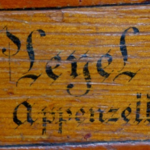 Pleyel
Appenzell